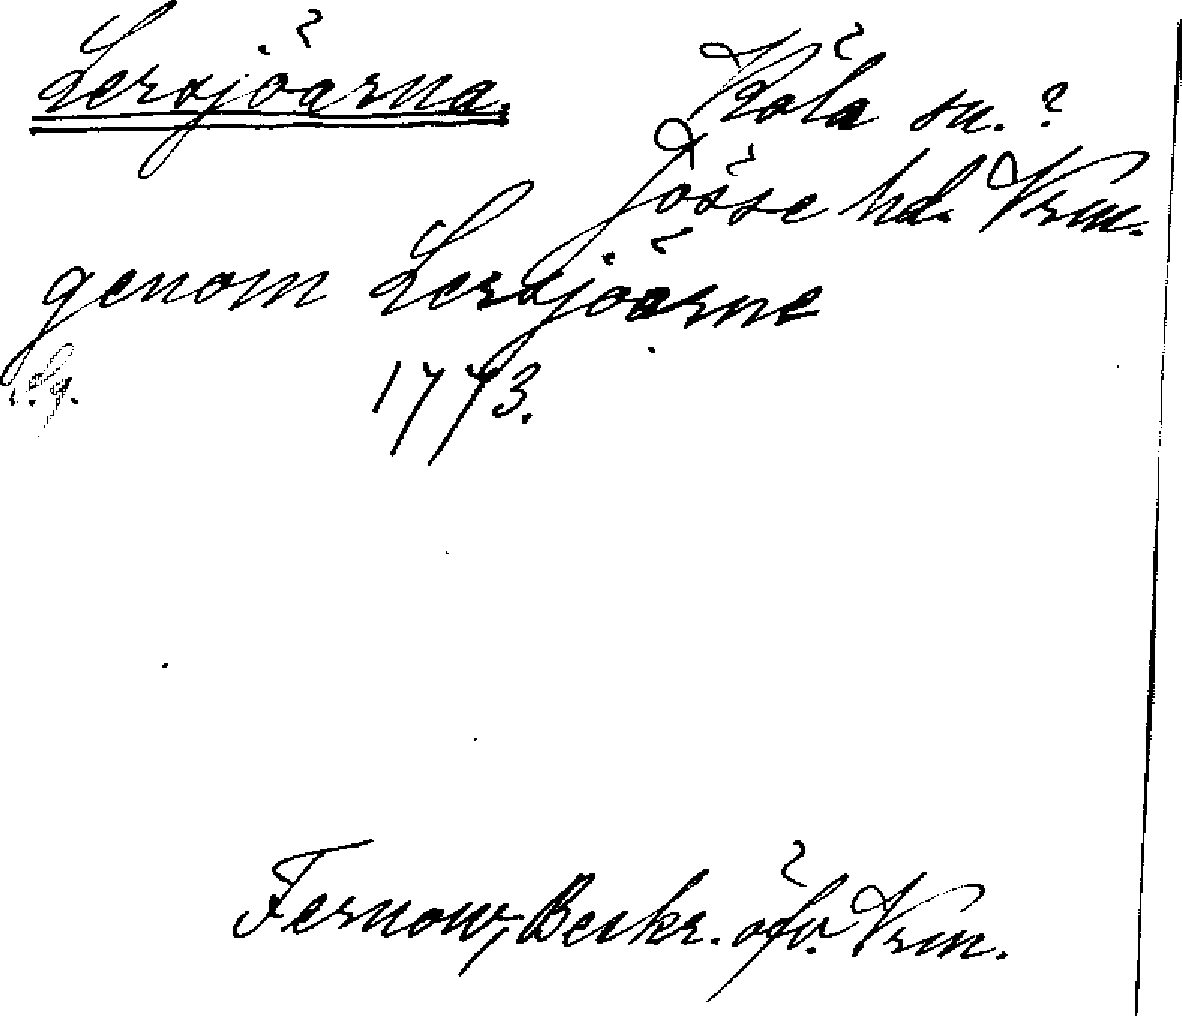 Lersjöarna.
Köla sn. ?
Jösse hd. Vrm.
genom Lersjöarne
1773.
Fernow, Beskr. öfv. Vrm.